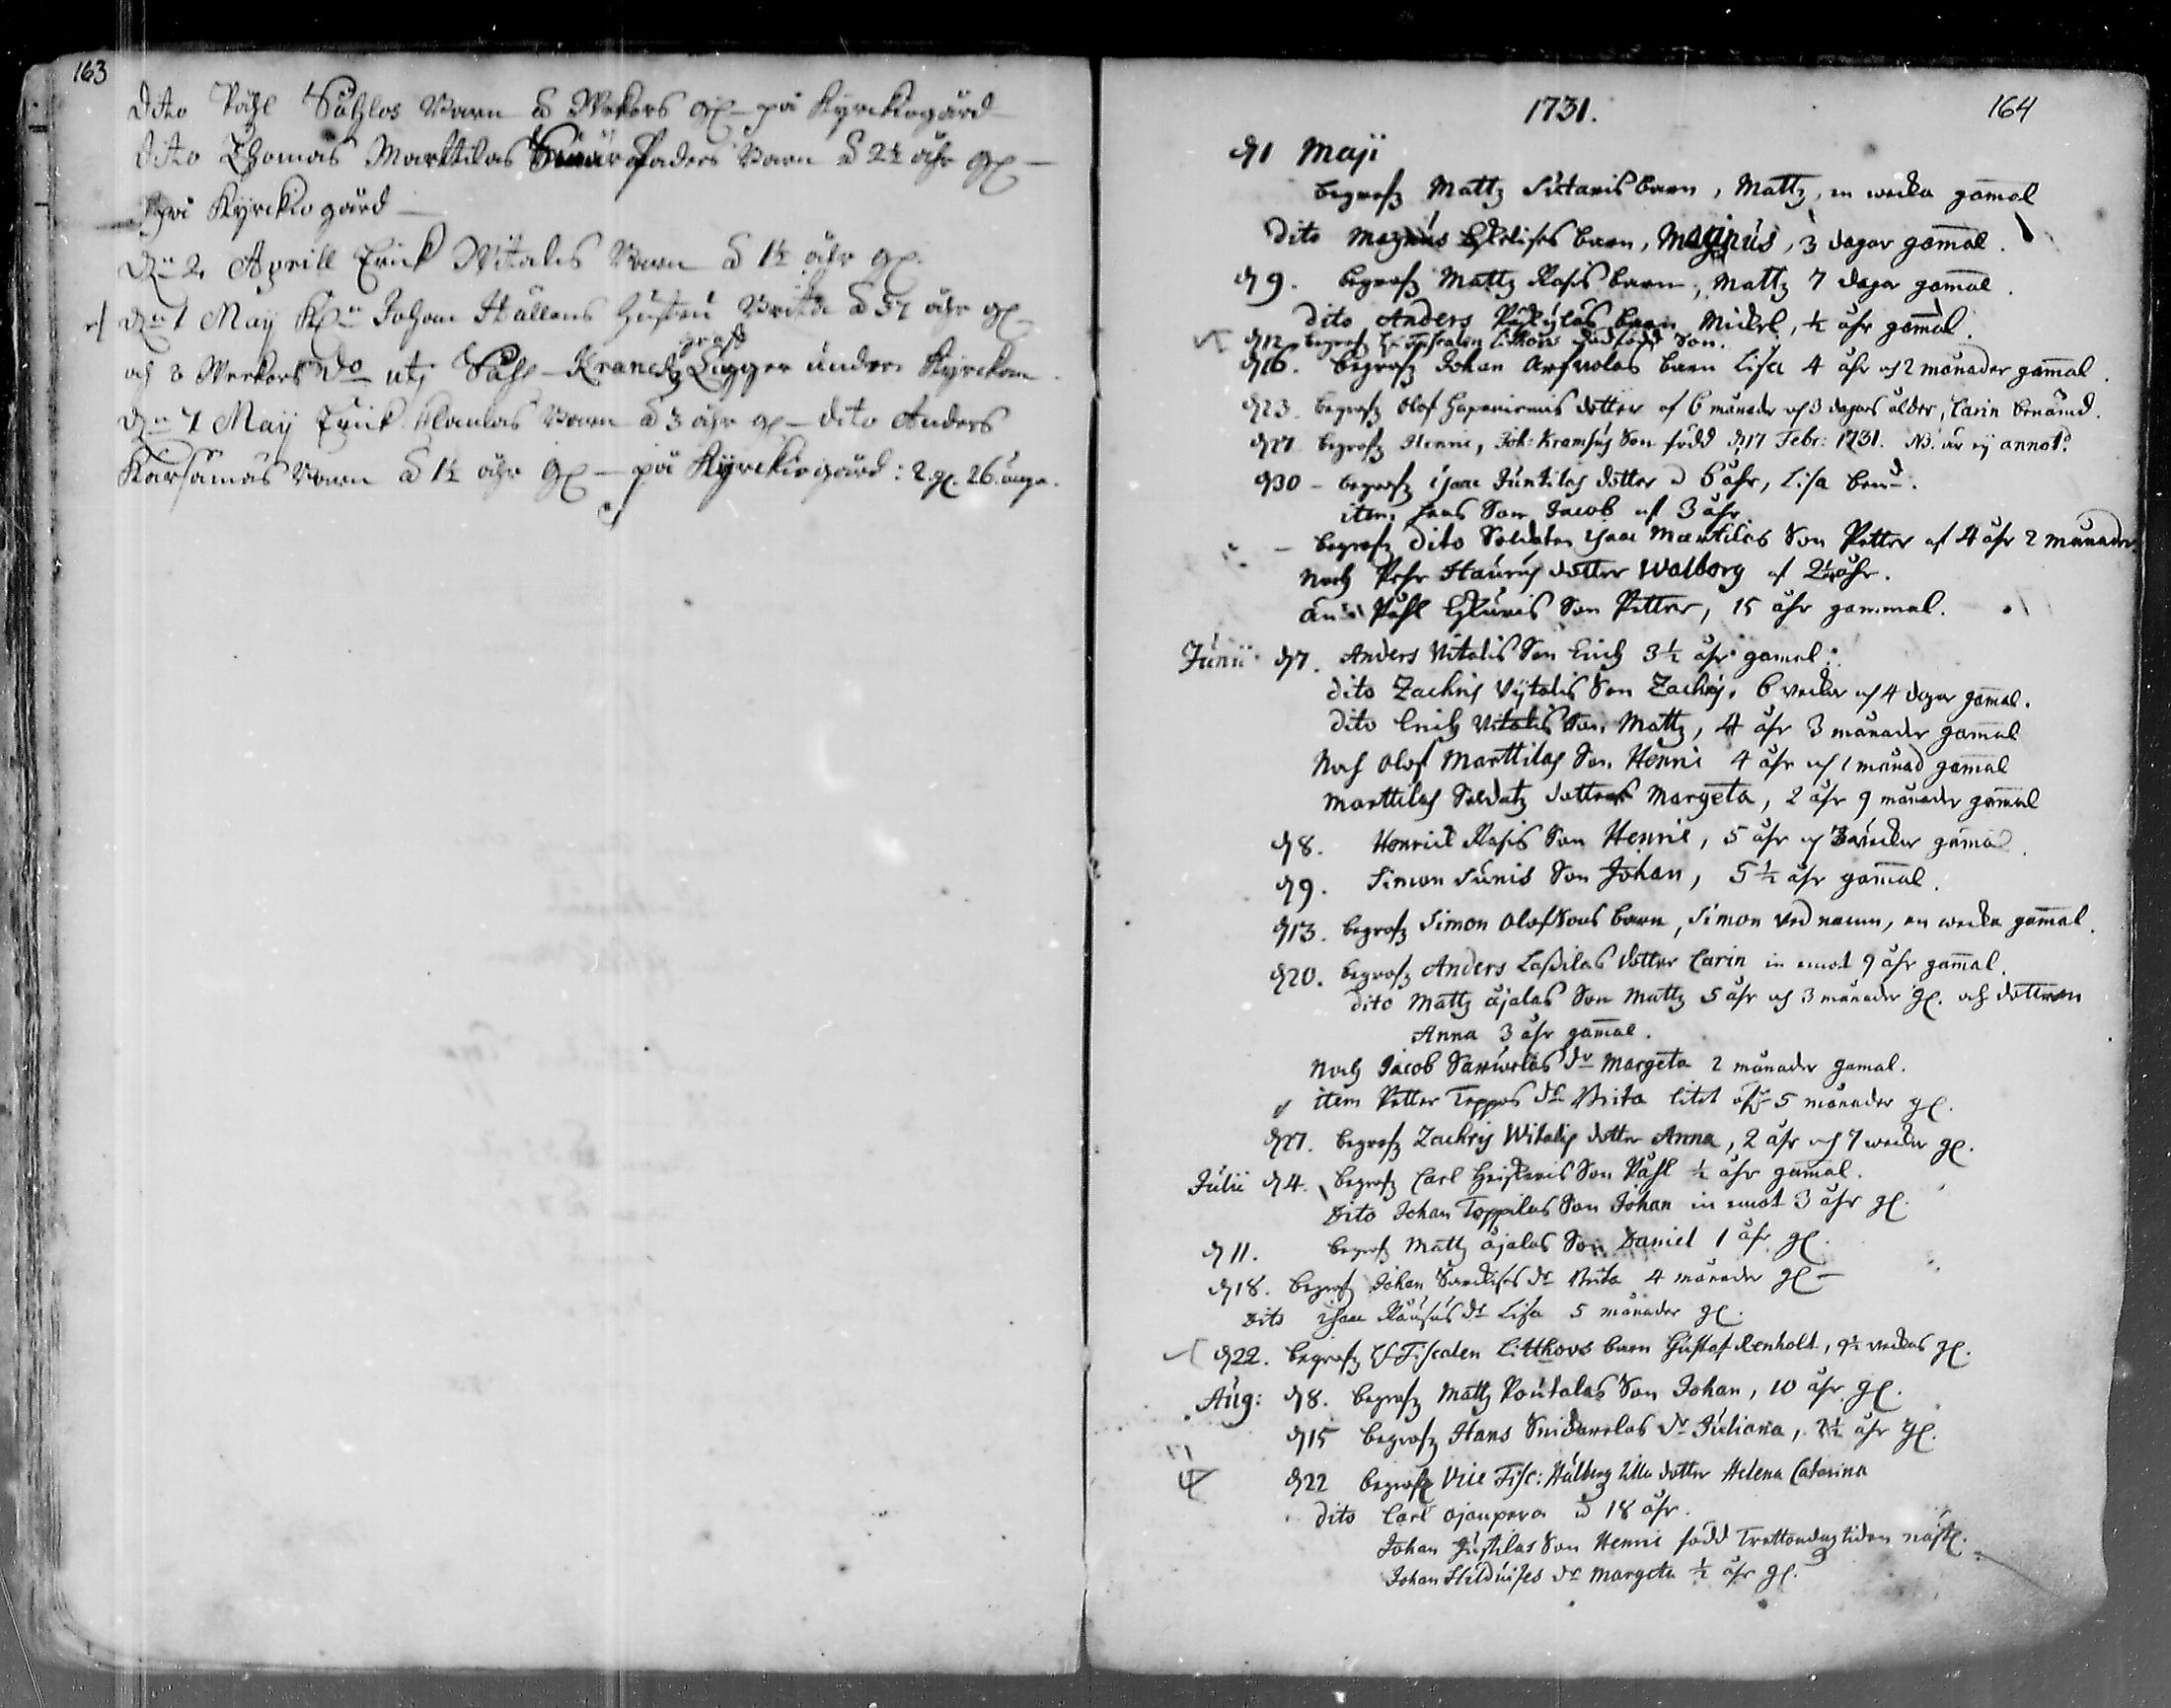 163
Dito Påhl Sahlos Barn à Wekors gl- på Kyrckiogård
dito Thomas Marttilas Swärfaders Barn à 2½ åhr gl-
på Kyrckiogård
Dn 2 Aprill Erick Witalis Barn à 1½ åhr gl.
Dn 1 May Johan Hallens hustru Brita à 57 åhr gl
och Wekors do utj Påhl Krancks graf Ligger under Kyrckan
Dn 7 May Erick Barn à 3 åhr gl- dito Anders
Karsamas Barn à 1½ åhr gl- på Kyrckiogård: 2 gl. 26 unga.
1731.
164
d 1 Maji
begrofz Mattz Sutaris barn, Mattz, en wecka gamal
Dito Magnus barn, Magnus, 3 dagar gamal.
d 9. begrofz Mattz Rasis barn, Mattz 7 dagar gamal.
Dito Anders barn Mickel, ½ åhr gamal.
d 12 begrofz Fiscalen Litthovs dödfödd Son.
d 16. begrofz Johan Arfwolas barn Lisa 4 åhr och 2 månader gamal.
d 23. begrofz Olof dotter af 6 månader och 3 dagars ålder, Carin benämd.
d 27 begrofz Henric, Joh: Kramsus Son född d 17 Febr: 1731. NB. är ej annot:
d 30 - begrofz Isaac Juntilas dotter à 6 åhr, Lisa ben:
item hans Son Jacob af 3 åhr
- begrofz Dito Soldaten Isaac Marttilas Son Petter af 4 åhr 2 månader
noch Pehr Haurus dotter Walborg af 2¼ åhr.
än Påhl Son Petter, 15 åhr gammal.
Junii d 7. Anders Vitalis Son Erich 3½ åhr gamal.
Dito Zachris Vijtalis Son Zachris, 6 wekor och 4 dagar gamal.
Dito Erich Vitalis Son, Mattz, 4 åhr 3 månader gamal
Noch Olof Marttilas Son Henric 4 åhr och 1 månad gamal
Marttilas Soldatz dotter Margeta, 2 åhr 9 månader gamal
d 8. Henrick Rasis Son Henric, 5 åhr och 3 weckor gamal.
d 9. Simon Sunis Son Johan, 5½ åhr gamal.
d 13. begrofz Simon Olofssons barn, Simon ved namn, en wecka gamal.
d 20. begrofz Anders Lassilas dotter Carin in emot 9 åhr gamal.
Dito Mattz Äjalas Son Mattz 5 åhr och 3 månader gl. och dottren
Anna 3 åhr gamal.
Noch Jacob Sarwelas dr Margeta 2 månader gamal.
item Petter Teppos dr Brita litet öfr 5 månader gl.
d 27. begrofz Zachris Witalis dotter Anna, 2 åhr och 7 weckor gl.
Julii d 4. begrofz Carl Son Påhl ½ åhr gamal.
Dito Johan Toppilas Son Johan in emot 3 åhr gl.
d 11. begrofz Mattz Äjalas Son Daniel 1 åhr gl.
d 18. begrofz Johan dr Brita 4 månader gl-
Dito Isaac dr Lisa 5 månader gl.
d 22. begrofz Fiscalen Litthovs barn Gustaf Renholt, 9½ weckas gl.
Aug: d 8. begrofz Mattz Poutalas Son Johan, 10 åhr gl.
d 15 begrofz Hans dr Juliana, 2½ åhr gl.
d 22 begrofz Vice Fisc: Hålberg lilla dotter Helena Catarina
Dito Carl Ojanpera à 18 åhr.
Johan Justilas Son Henric född Trettondagtiden nästl.
Johan dr Margeta ½ åhr gl.